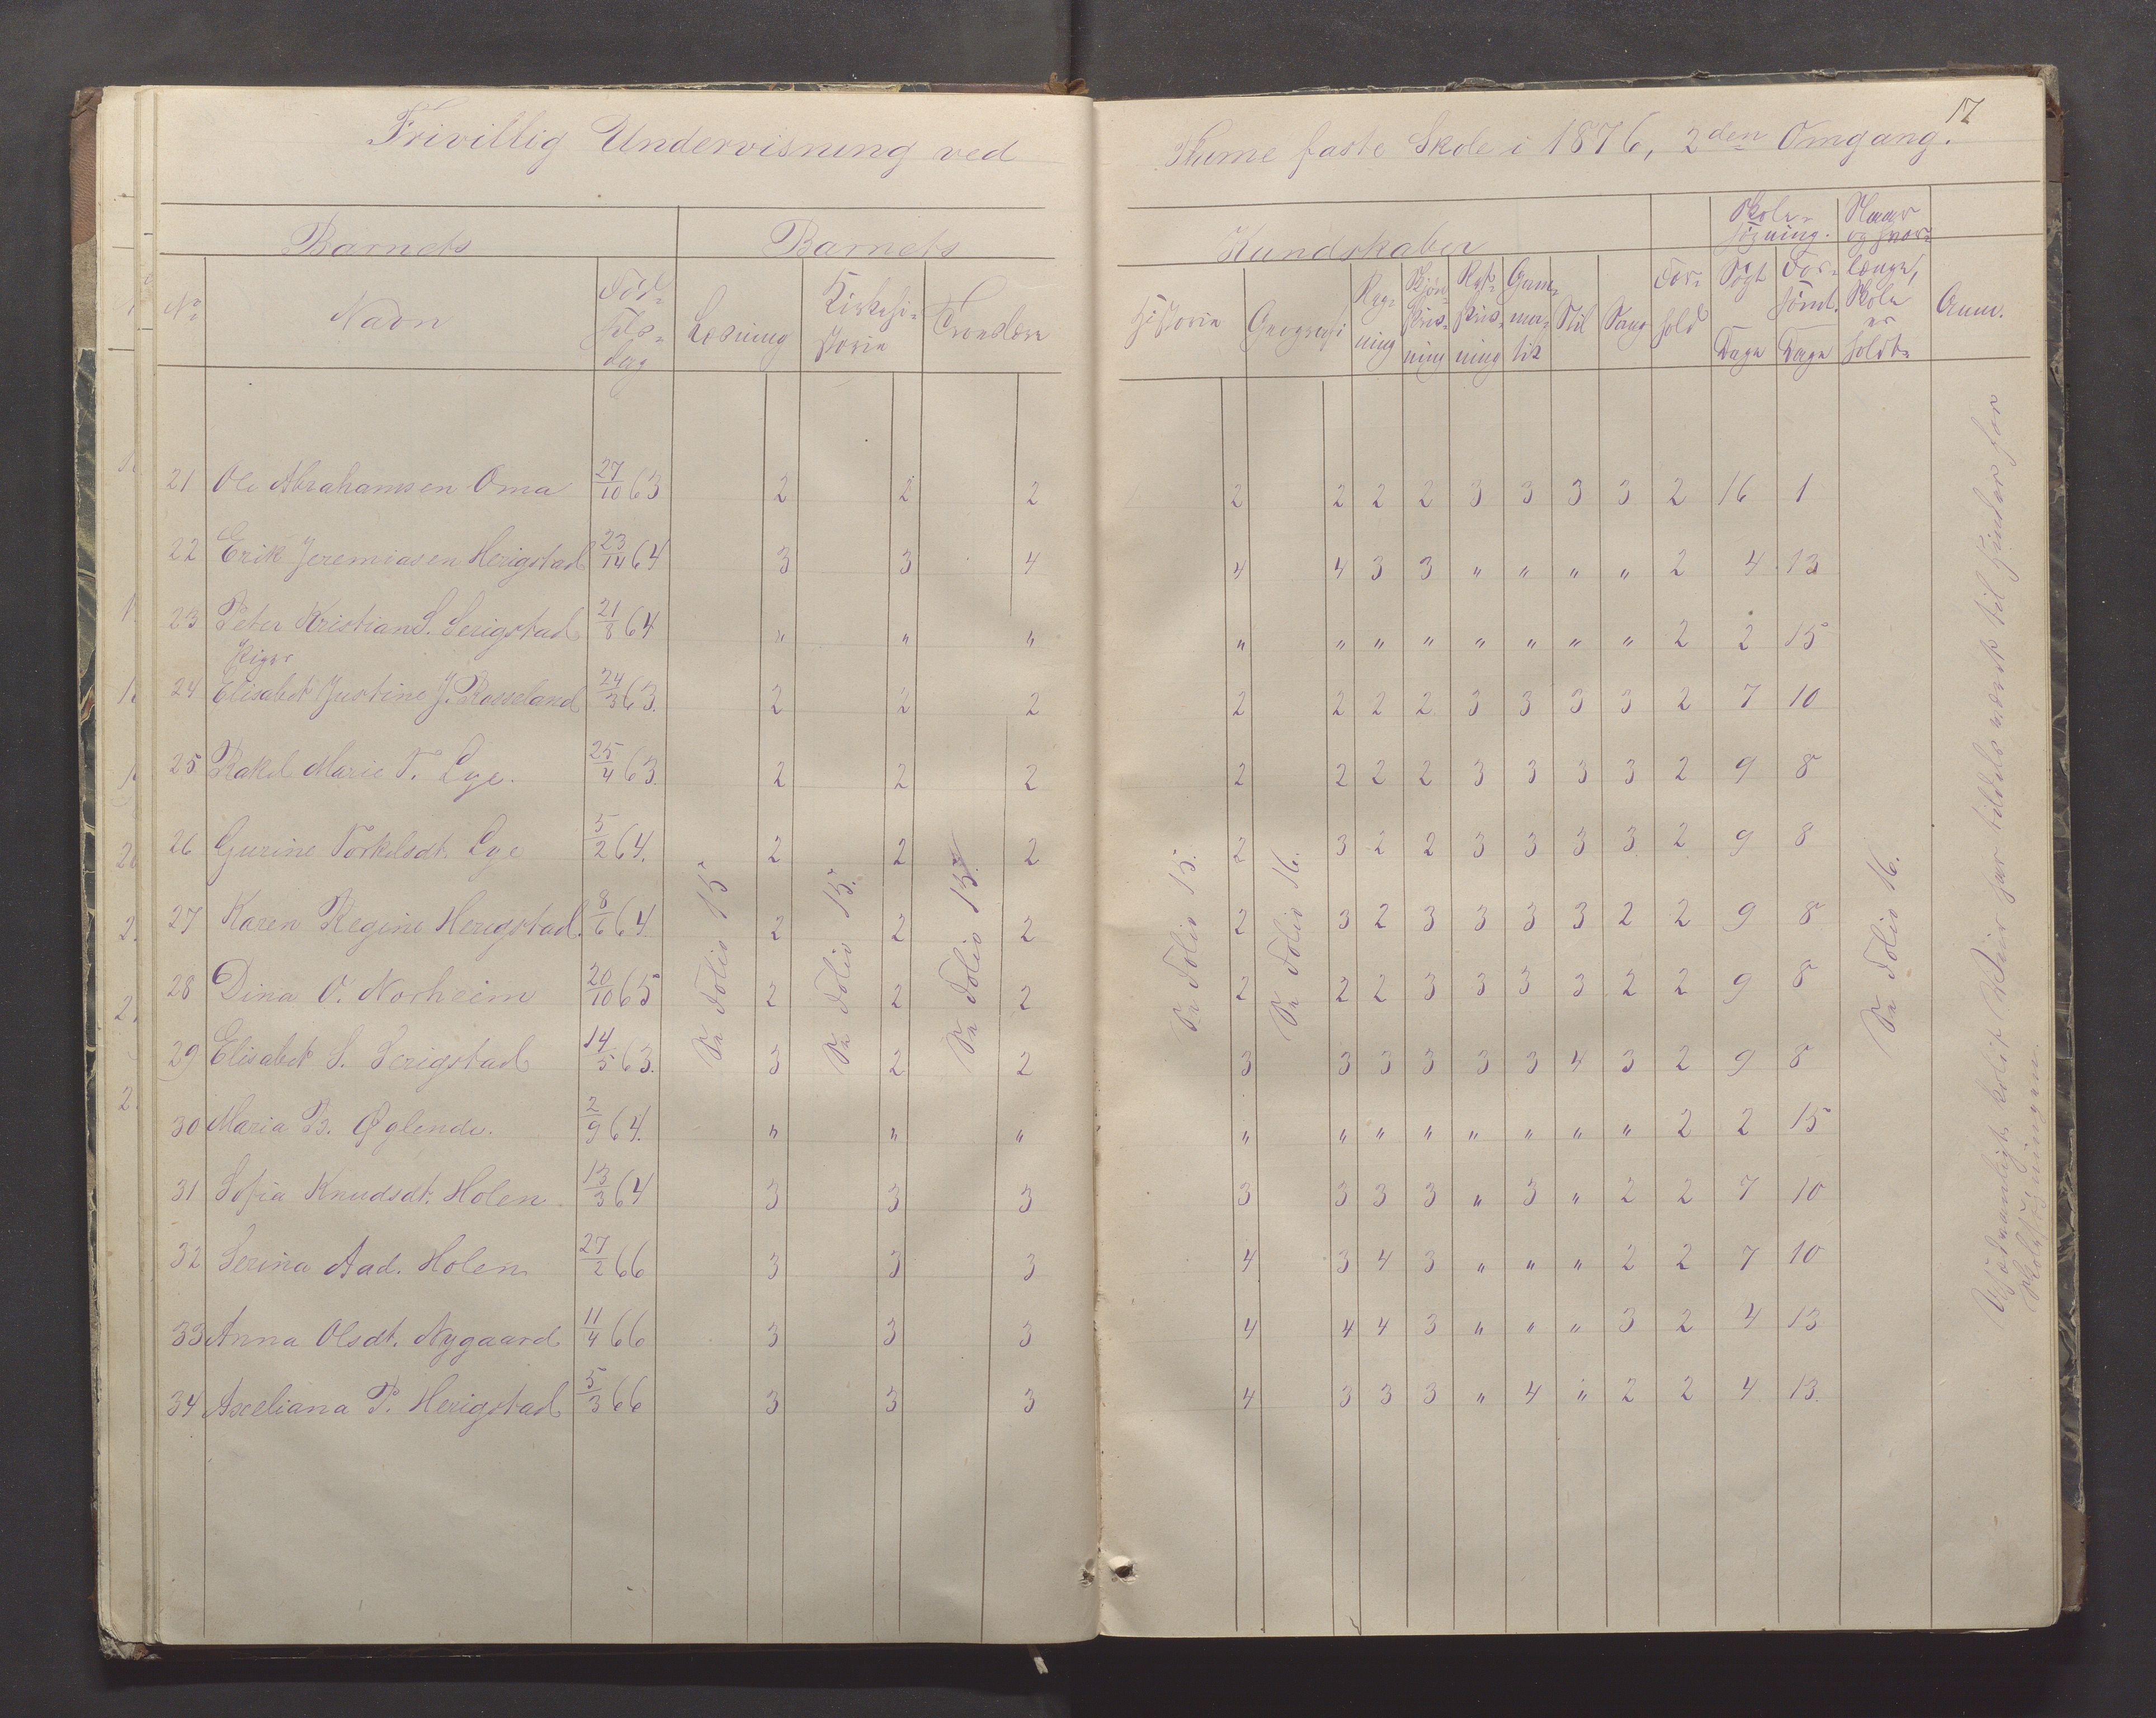 17
Frivillig Undervisning ved Thime faste Skole i 1876, 2den Omgang.
Barnets Barnets Kundskaber Skole- søgning. Naar og hvor- længe, Skole er holdt.
No Navn Fød- sels- dag Læsning Kirkehi- storie Troeslære Historie Geografi Reg- ning Skjøn- skriv- ning Ret- skriv- ning Gram- ma- tik Stil Sang For- hold Søgt Dage For- sømt. Dage Anm.
21 Ole Abrahamsen Oma 27/10 63 2 2 2 2 2 2 2 3 3 3 3 2 16 1
22 Erik Jeremiasen Herigstad 23/14 64 3 3 4 4 4 3 3 " " " " 2 4 13
23 Peter Kristian S. Serigstad 21/8 64 " " " " " " " " " " " 2 2 15
Piger
24 Elisabet Justine J. Rosseland 24/3 63. 2 2 2 2 2 2 2 3 3 3 3 2 7 10
25 Rakel Marie T. Lye. 25/4 63. 2 2 2 2 2 2 2 3 3 3 3 2 9 8
26 Gurine Torkelsdt. Lye 5/2 64. 2 2 2 2 3 2 2 3 3 3 3 2 9 8
27 Karen Regine Herigstad. 8/6 64 2 2 2 2 3 2 3 3 3 3 2 2 9 8
28 Dina O. Norheim 20/10 65 2 2 2 2 2 2 3 3 3 3 2 2 9 8
29 Elisabet S. Serigstad 14/5 63. 3 2 2 3 3 3 3 3 3 4 3 2 9 8
30 Maria B. Øglende. 2/9 64. " " " " " " " " " " " 2 2 15
31 Sofia Knudsdt. Holen. 13/3 64 3 3 3 3 3 3 3 " 3 " 2 2 7 10
32 Serina Aad. Holen 27/2 66 3 3 3 4 3 4 3 " " " 2 2 7 10
33 Anna Olsdt. Nygaard 11/4 66 3 3 3 4 4 4 3 " " " 3 2 4 13
34 Axeliana P. Herigstad 5/3 66 3 3 3 4 3 3 3 " 4 " 2 2 4 13.
Se Folio 15
Se Folio 15.
Se Folio 15.
Se Folio 15.
Se Folio 16.
Se Folio 16.
har tildels været til Hinder for
Skolesøgningen.